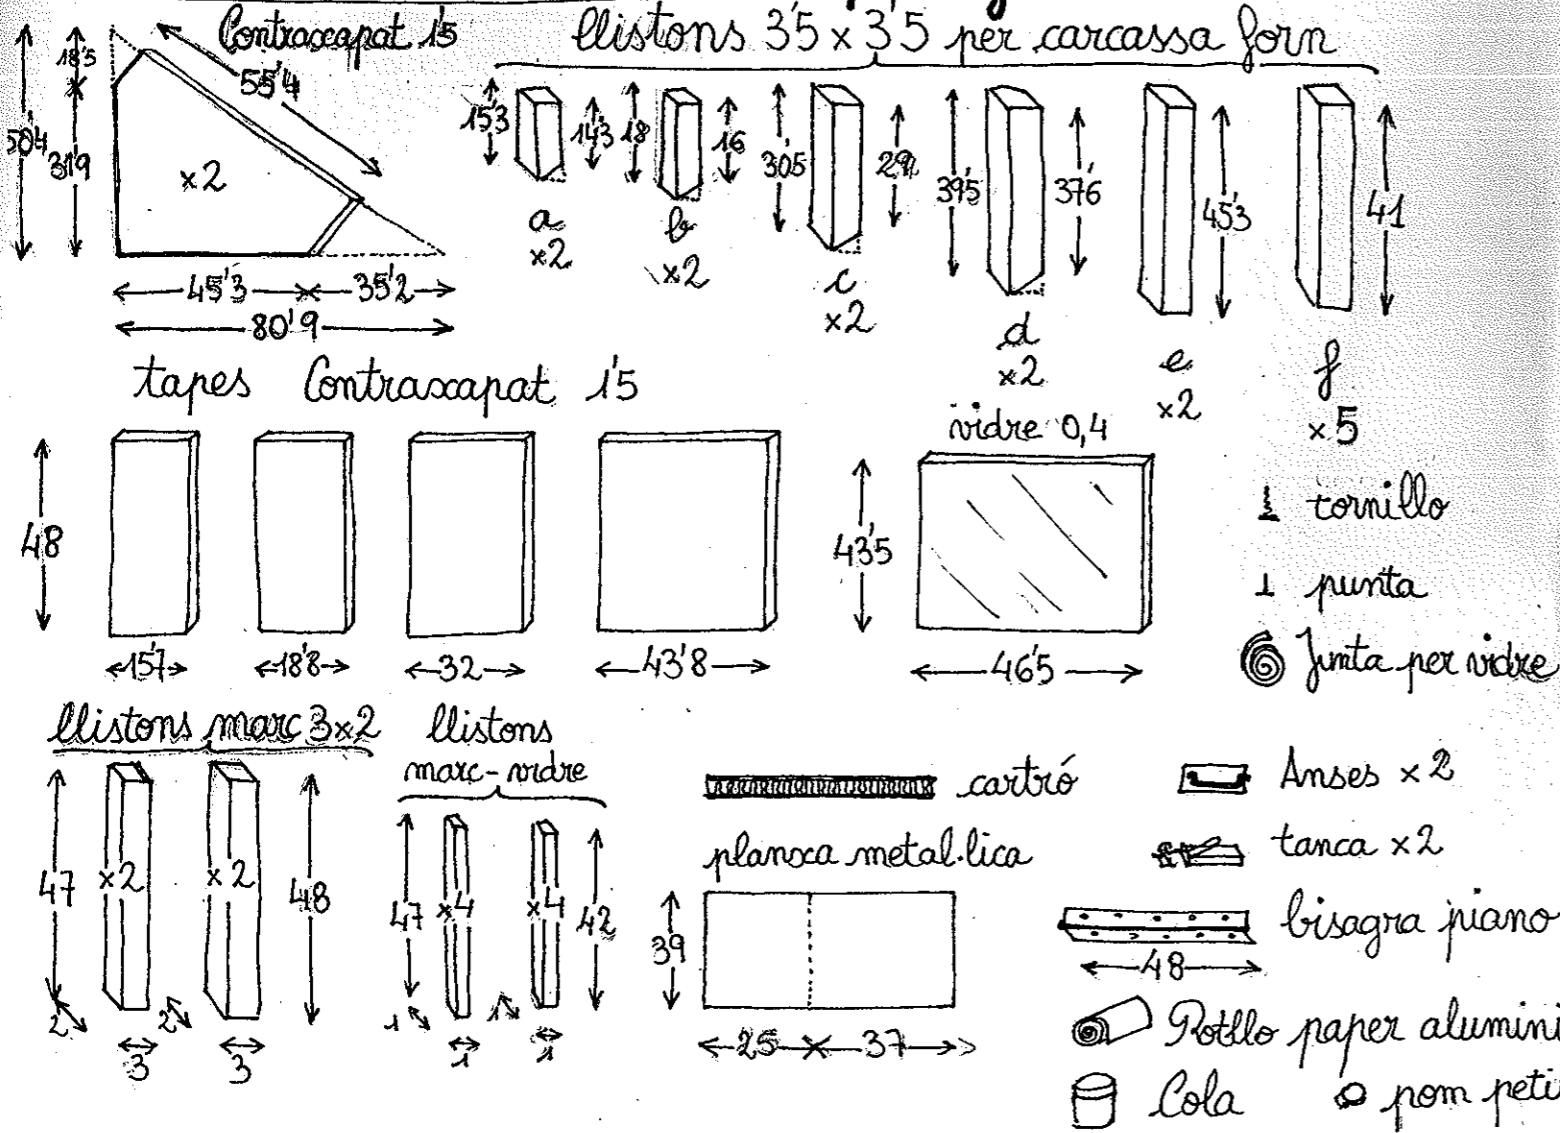 Contraxapat 1'5
llistons 3'5 x 3'5 per carcassa forn
18'5
50'4
31'9
55'4
x2
45'3
35'2
80'9
15'3
14'3
a
x2
18
16
b
x2
30'5
c
x2
39'5
37'6
d
x2
45'3
e
x2
41
f
x5
tapes Contraxapat 1'5
48
15'7
18'8
32
43'8
vidre 0,4
43'5
46'5
tornillo
punta
Junta per vidre
llistons marc 3x2
47
x2
x2
48
2
3
2
3
llistons
marc-vidre
47
x4
x4
42
1
1
1
1
cartró
planxa metal.lica
39
25
37
Anses x2
tanca x2
bisagra piano
48
Rotllo paper alumini
Cola
pom peti